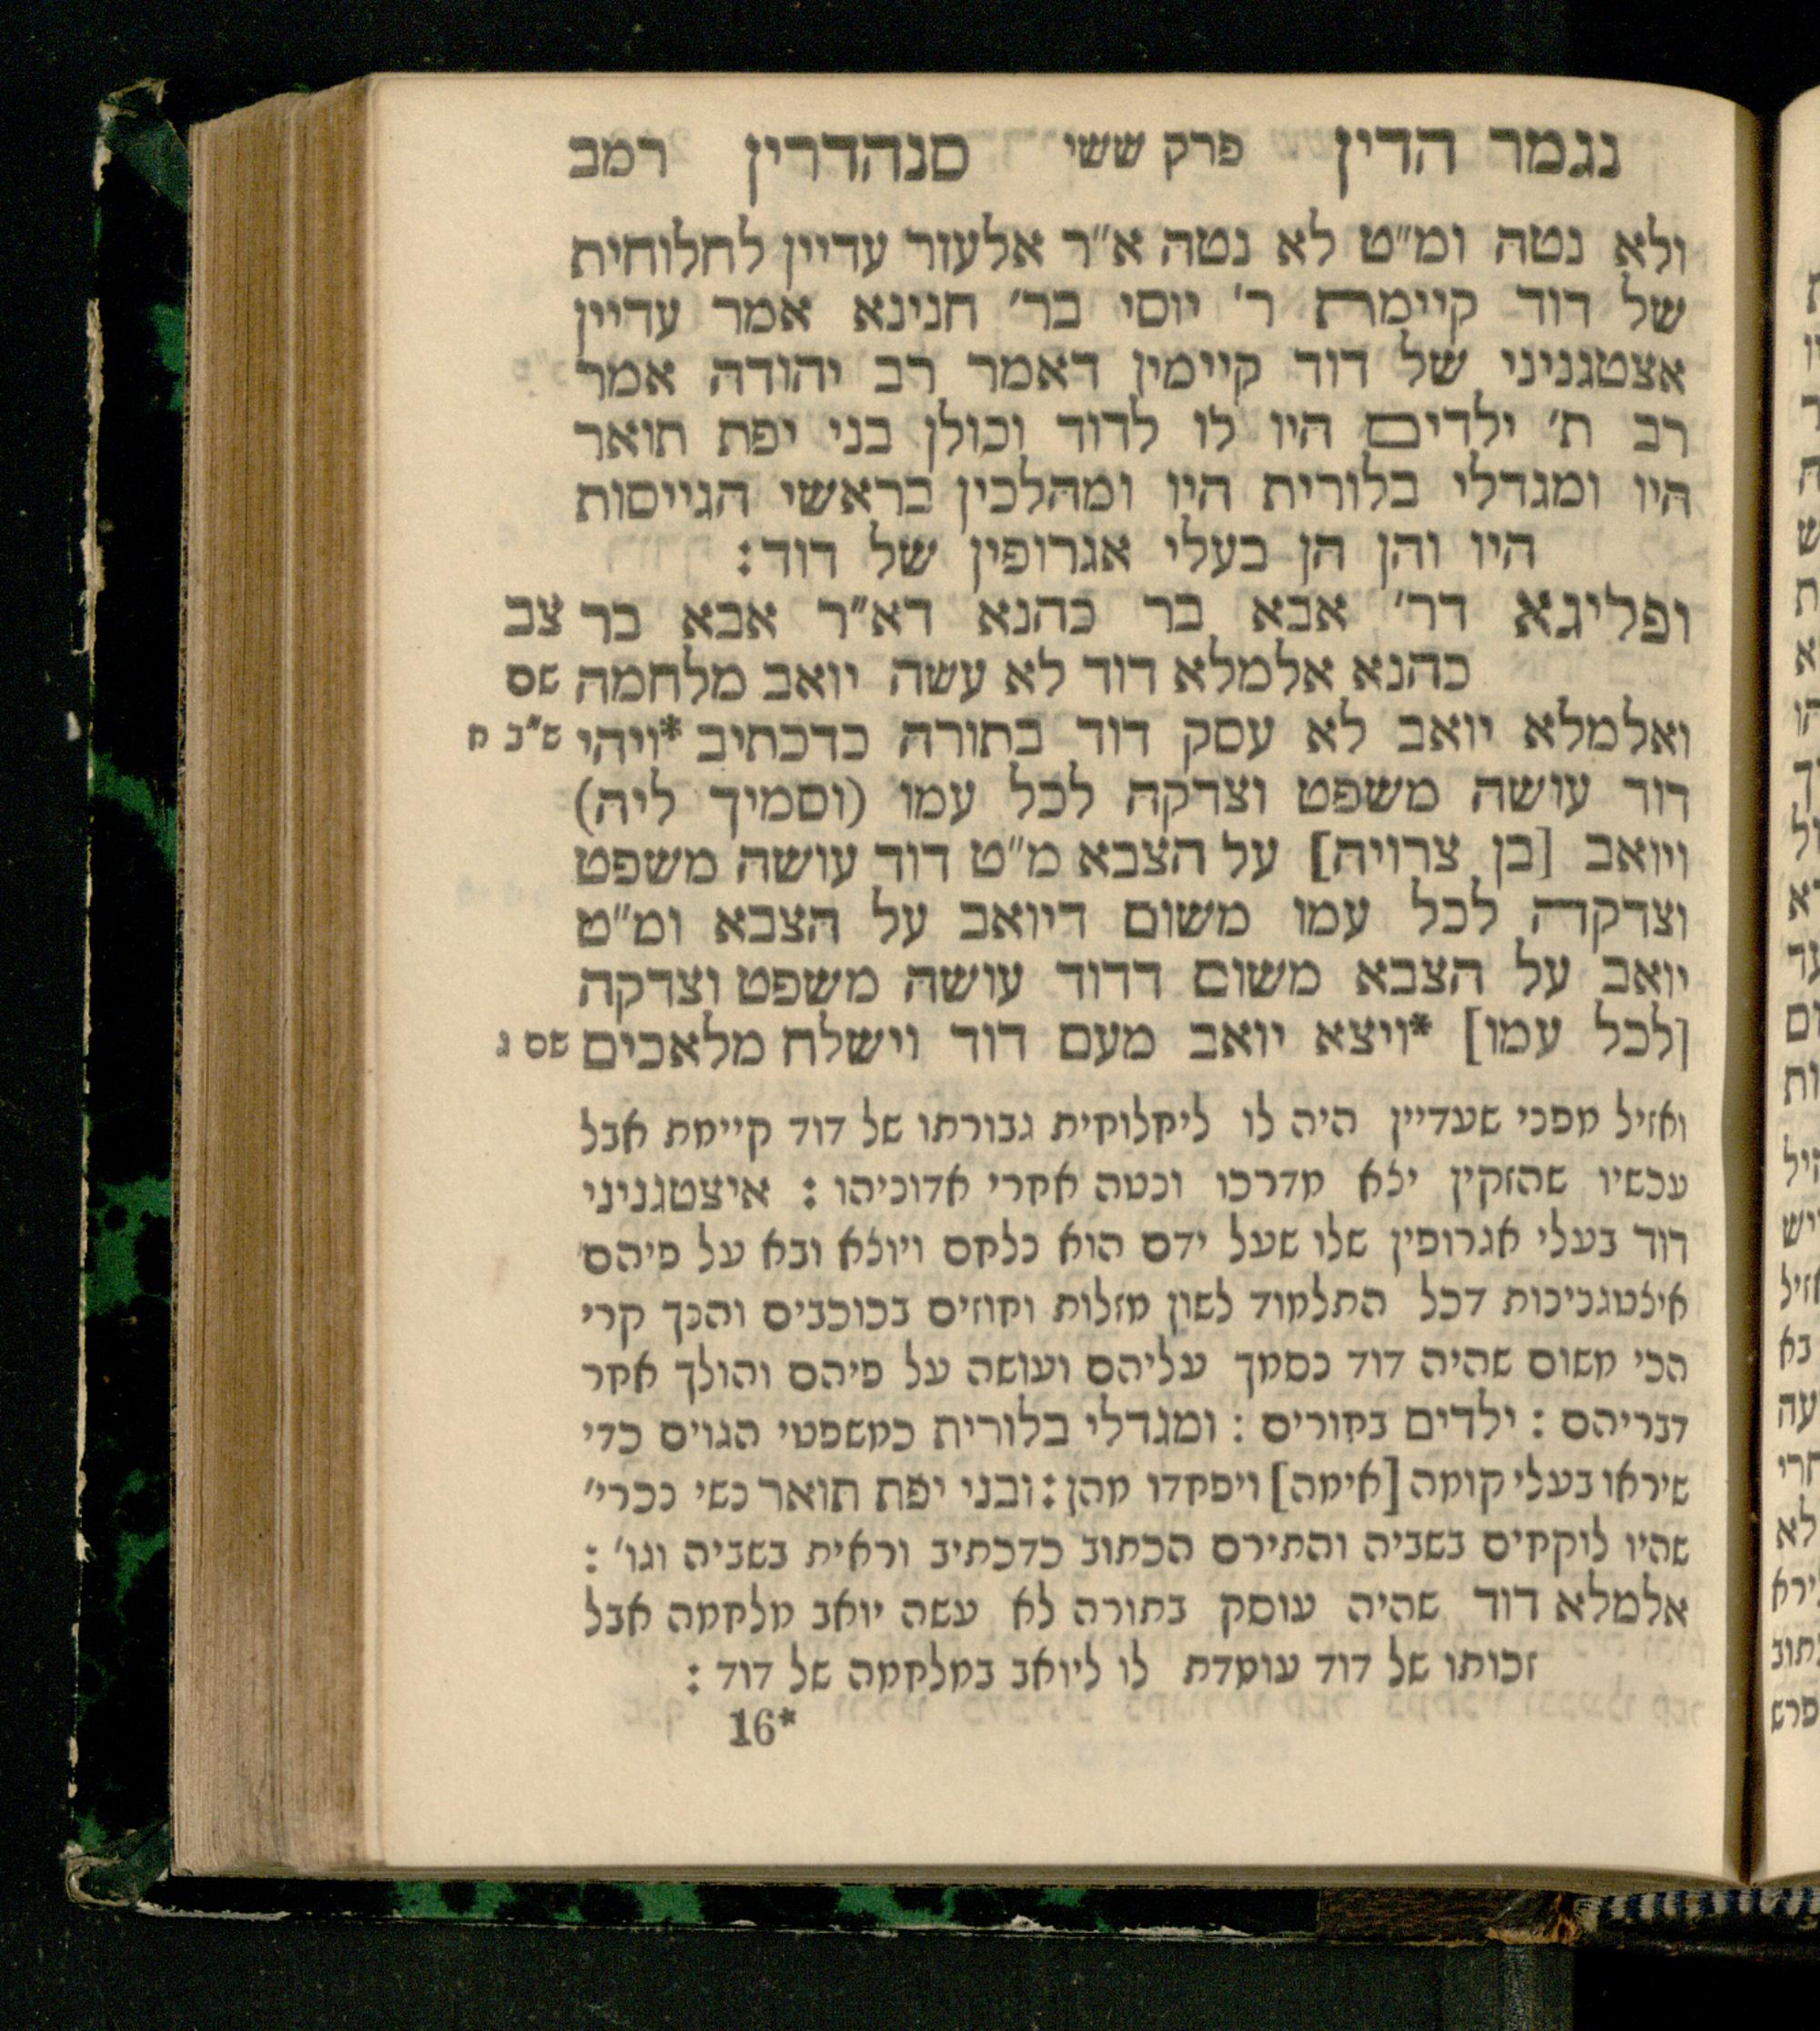 נגמר הדין פרק ששי סנהדרין רמב
ולא נטה ומ״ט לא נטה א״ר אלעזר עדיין לחלוחית
של דוד קיימת ר׳ יוסי בר׳ חנינא אמר עדיין
אצטגניני של דוד קיימין דאמר רב יהודה אמר
רב ת׳ ילדים היו לו לדוד וכולן בני יפת תואר
היו ומגדלי בלורית היו ומהלכין בראשי הגייסות
היו והן הן בעלי אגרופין של דוד:
ופליגא דר׳ אבא בר כהנא דא״ר אבא בר צב
כהנא אלמלא דוד לא עשה יואב מלחמה שם
ואלמלא יואב לא עסק דוד בתורה כדכתיב *ויהי ש״ב ח
דוד עושה משפט וצדקה לכל עמו (וסמיך ליה)
ויואב [בן צרויה] על הצבא מ״ט דוד עושה משפט
וצדקה לכל עמו משום דיואב על הצבא ומ״ט
יואב על הצבא משום דדוד עושה משפט וצדקה
[לכל עמו] *ויצא יואב מעם דוד וישלח מלאכים שם ג
ואזיל מפני שעדיין היה לו ליחלוחית גבורתו של דוד קיימת אבל
עכשיו שהזקין יצא מדרכו ונטה אחרי אדוניהו : איצטגניני
דוד בעלי אגרופין שלו שעל ידם הוא נלחם ויוצא ובא על פיהם
איצטגנינות דכל התלמוד לשון מזלות וחוזים בכוכבים והנך קרי
הכי משום שהיה דוד נסמך עליהם ועושה על פיהם והולך אחר
דבריהם : ילדים בחורים : ומגדלי בלורית כמשפטי הגוים כדי
שיראו בעלי קומה [אימה] ויפחדו מהן : ובני יפת תואר נשי נכרי׳
שהיו לוקחים בשביה והתירם הכתוב כדכתיב וראית בשביה וגו׳ :
אלמלא דוד שהיה עוסק בתורה לא עשה יואב מלחמה אבל
זכותו של דוד עומדת לו ליואב במלחמה של דוד :
16*